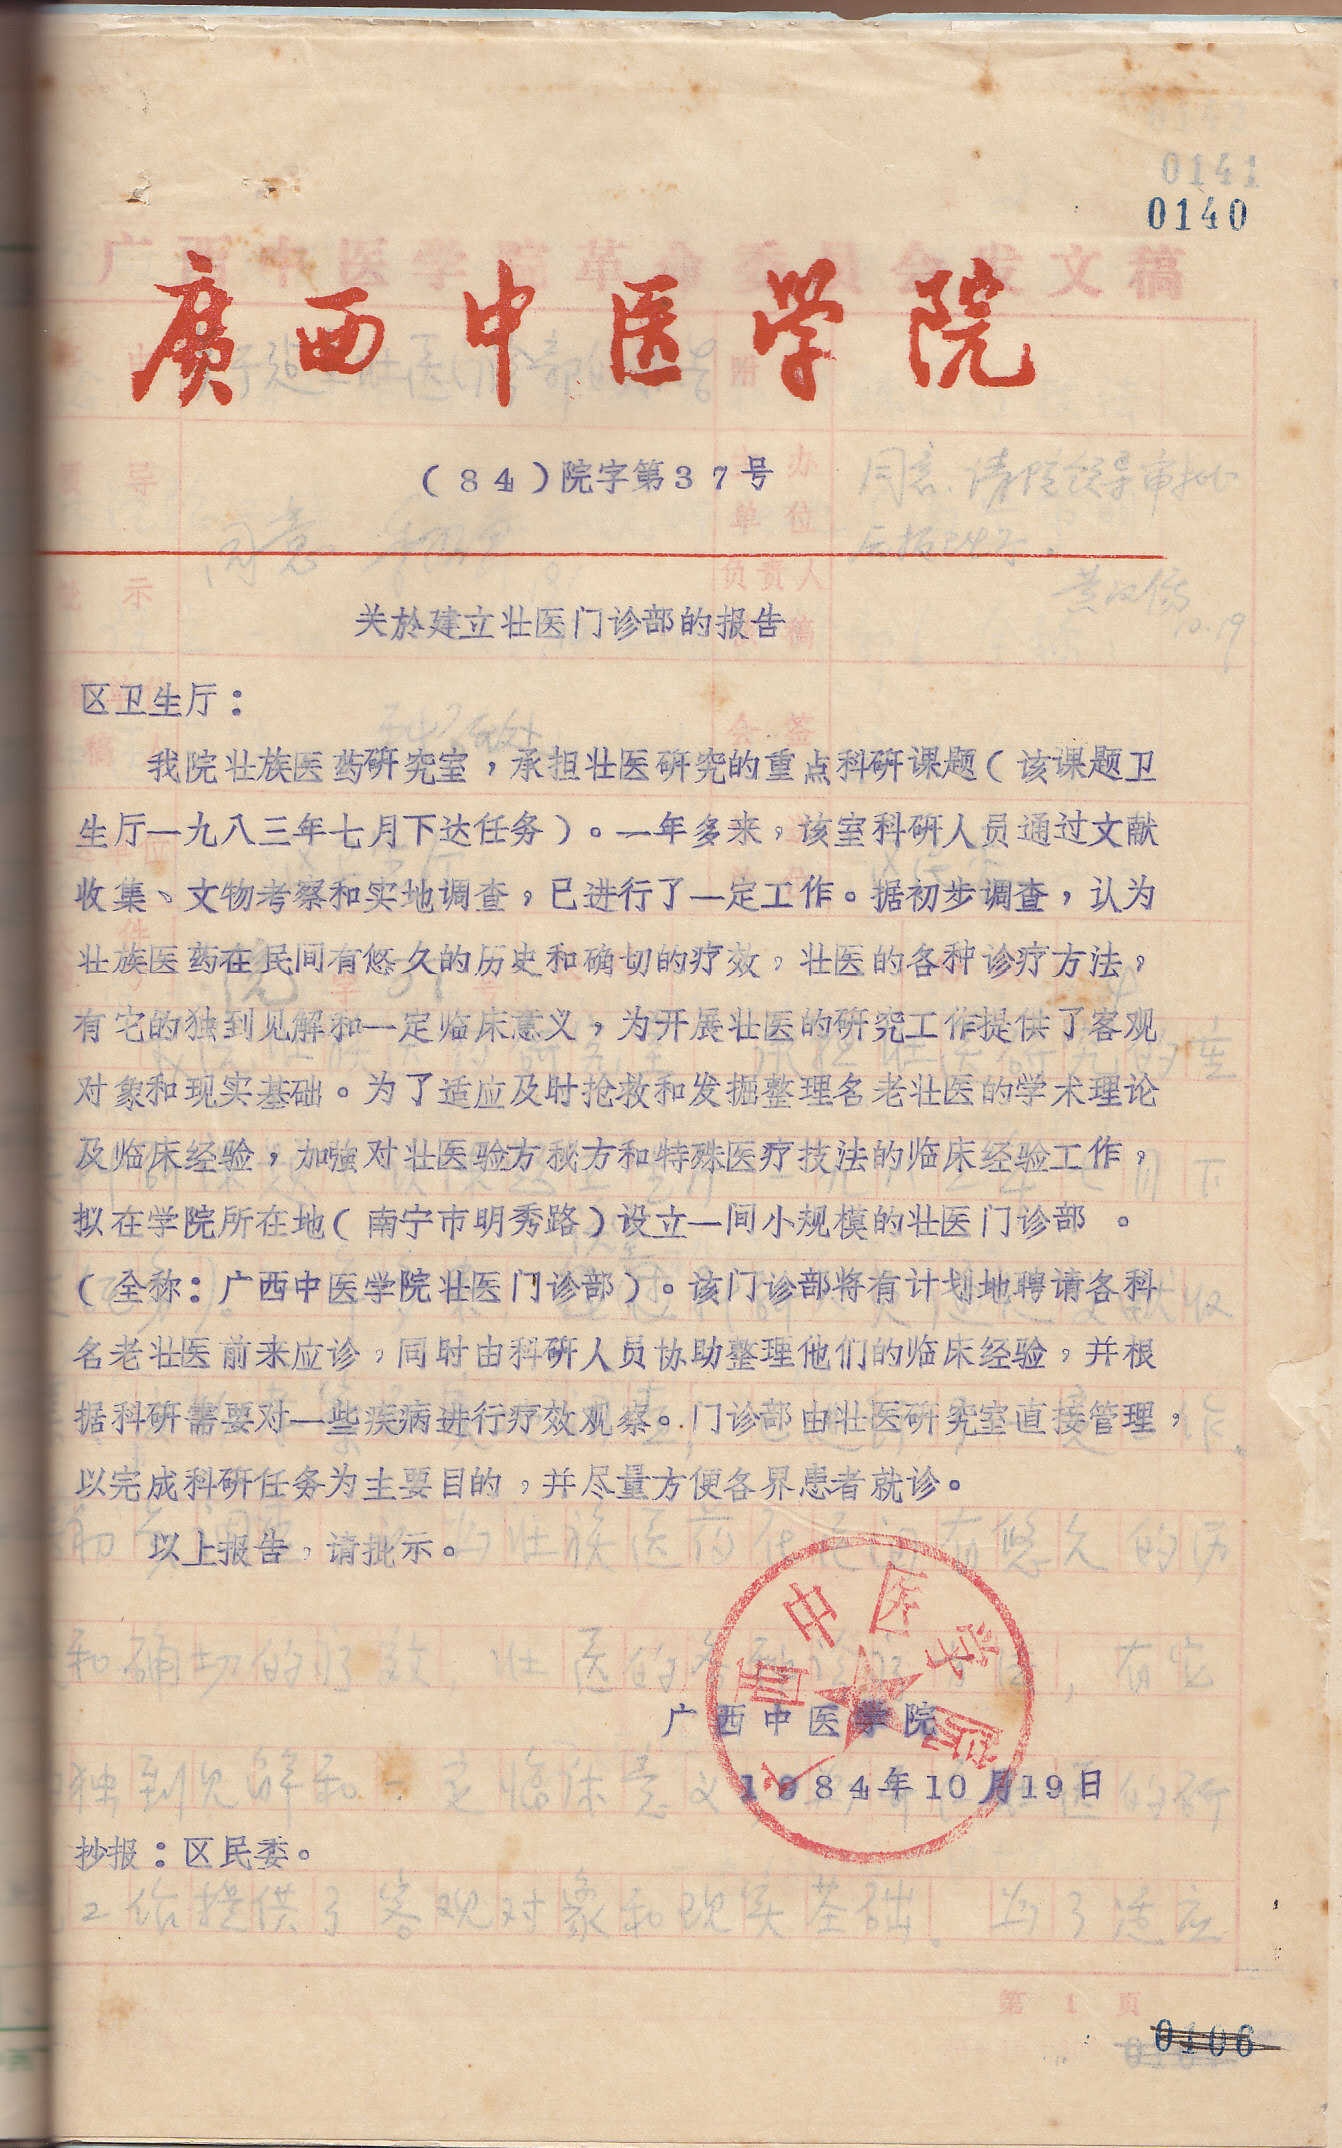 0141
0140
廣西中医学院
(84)院字第37号
关於建立壮医门诊部的报告
区卫生厅：
我院壮族医药研究室，承担壮医研究的重点科研课题(该课题卫
生厅一九八三年七月下达任务)。一年多来，该室科研人员通过文献
收集、文物考察和实地调查，已进行了一定工作。据初步调查，认为
壮族医药在民间有悠久的历史和确切的疗效，壮医的各种诊疗方法，
有它的独到见解和一定临床意义，为开展壮医的研究工作提供了客观
对象和现实基础。为了适应及时抢救和发掘整理名老壮医的学术理论
及临床经验，加強对壮医验方秘方和特殊医疗技法的临床经验工作，
拟在学院所在地(南宁市明秀路)设立一间小规模的壮医门诊部。
(全称：广西中医学院壮医门诊部)。该门诊部将有计划地聘请各科
名老壮医前来应诊，同时由科研人员协助整理他们的临床经验，并根
据科研需要对一些疾病进行疗效观察。门诊部由壮医研究室直接管理，
以完成科研任务为主要目的，并尽量方便各界患者就诊。
以上报告，请批示。
广西中医学院
广西中医学院
1984年10月19日
抄报：区民委。
第1页
0106